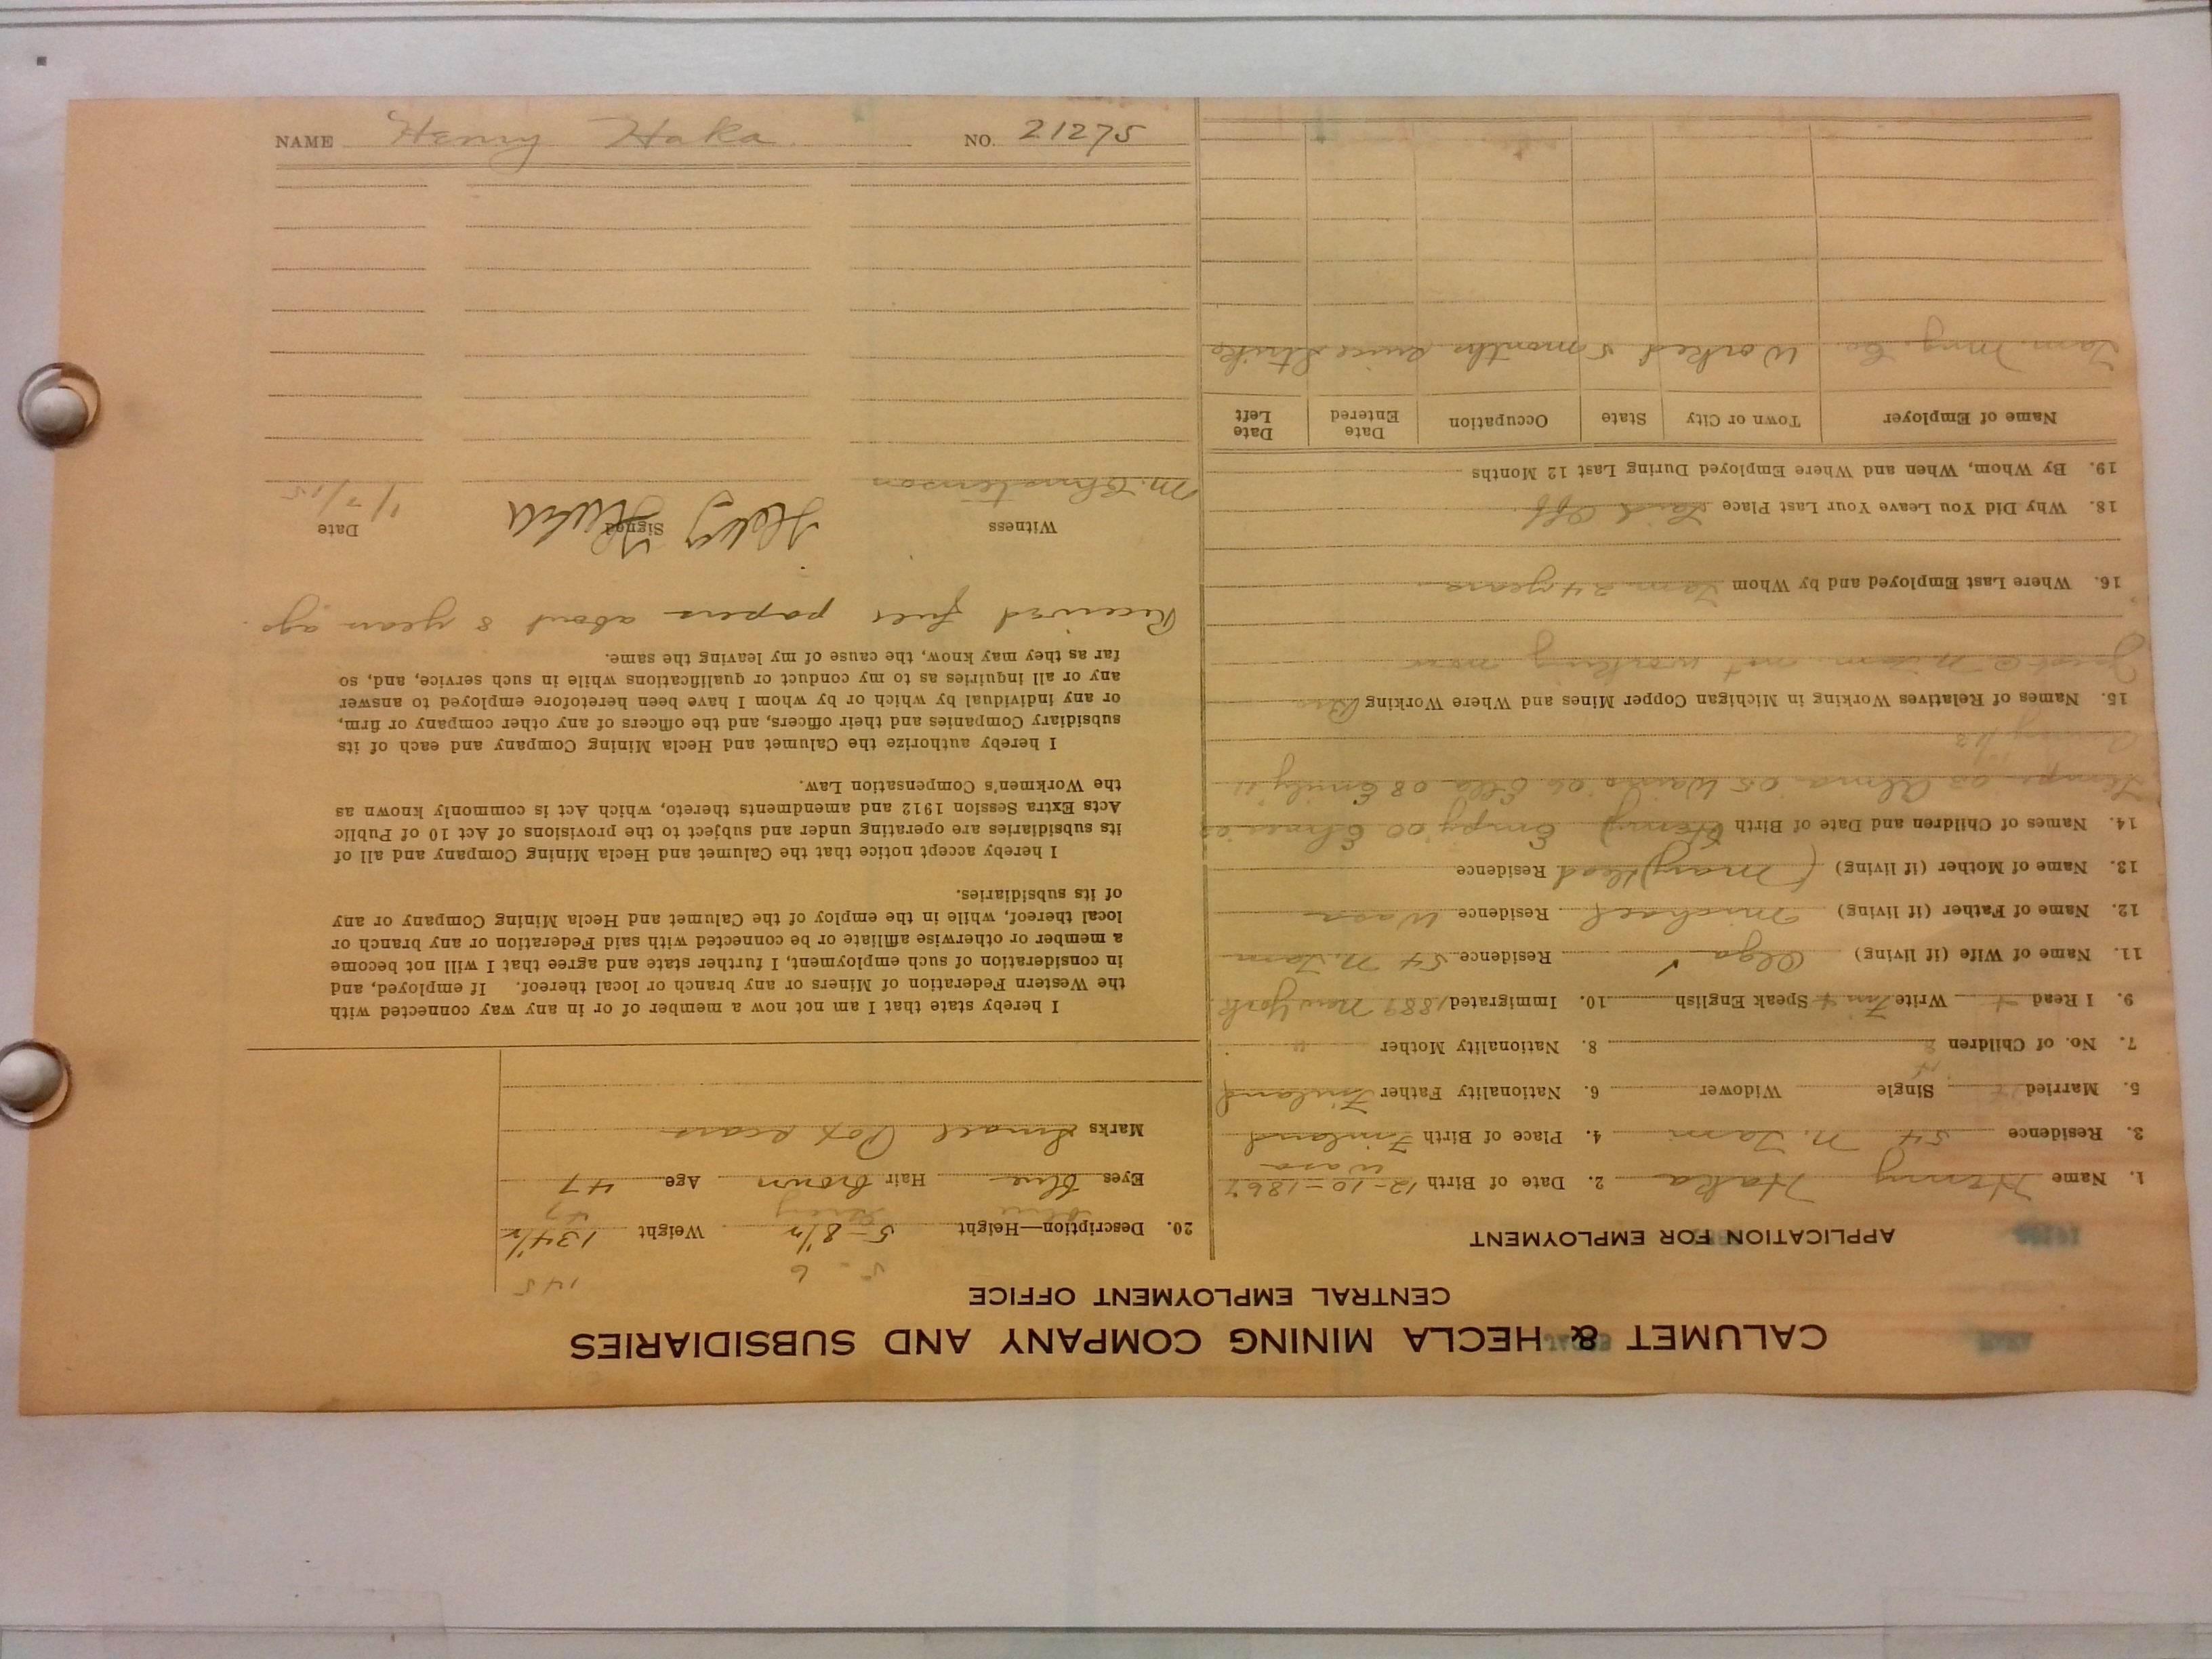 CALUMET & HECLA MINING COMPANY AND SUBSIDIARIES
CENTRAL EMPLOYMENT OFFICE
APPLICATION FOR EMPLOYMENT
1. Name Henry Haka 2. Date of Birth 12-10-1867
Wasa
3. Residence 54 N. Tam 4. Place of Birth Finland
5. Married Single Widower 6. Nationality Father Finland
7. No. of Children 8 8. Nationality Mother "
9. I Read Write Finn Speak English 10. Immigrated 1889 New York
11. Name of Wife (if living) Olga ✓ Residence 54 N. Tam
12. Name of Father (if living) Michael Residence Wasa
13. Name of Mother (if living) (Mary) dead Residence
14. Names of Children and Date of Birth Henry Empy '00
Alma 05 Waino 06 Ella 08 Emily 11
15. Names of Relatives Working in Michigan Copper Mines and Where Working Bro
N. Tam. not working now
16. Where Last Employed and by Whom Tam 24 years
18. Why Did You Leave Your Last Place Laid Off
19. By Whom, When and Where Employed During Last 12 Months
Name of Employer Town or City State Occupation Date Entered Date Left
Tam. Mng. Co Worked 5 months since Strike
5-6 145
20. Description—Height 5-8½ Weight 134½
blue grey 47
Eyes blue Hair brown Age 47
Marks Small Pox scars
I hereby state that I am not now a member of or in any way connected with
the Western Federation of Miners or any branch or local thereof. If employed, and
in consideration of such employment, I further state and agree that I will not become
a member or otherwise affiliate or be connected with said Federation or any branch or
local thereof, while in the employ of the Calumet and Hecla Mining Company or any
of its subsidiaries.
I hereby accept notice that the Calumet and Hecla Mining Company and all of
its subsidiaries are operating under and subject to the provisions of Act 10 of Public
Acts Extra Session 1912 and amendments thereto, which Act is commonly known as
the Workmen's Compensation Law.
I hereby authorize the Calumet and Hecla Mining Company and each of its
subsidiary Companies and their officers, and the officers of any other company or firm,
or any individual by which or by whom I have been heretofore employed to answer
any or all inquiries as to my conduct or qualifications while in such service, and, so
far as they may know, the cause of my leaving the same.
Received full papers about 8 years ago.
Witness Signed Date
M. Christenson Henry Haka
NAME Henry Haka. NO. 21275